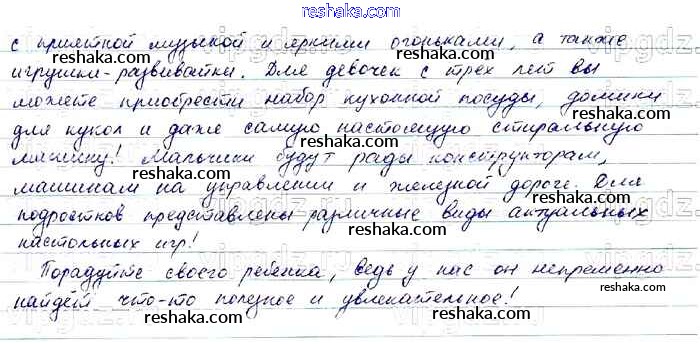 reshaka.com
с приятной музыкой и яркими огоньками, а также
игрушки-развивайки. Для девочек с трех лет вы
можете приобрести набор кухонной посуды, домики
для кукол и даже самую настоящую стиральную
машину! Мальчики будут рады конструкторам,
машинам на управлении и железной дороге. Для
подростков представлены различные виды актуальных
настольных игр!
Порадуйте своего ребенка, ведь у нас он непременно
найдет что-то полезное и увлекательное!
reshaka.com